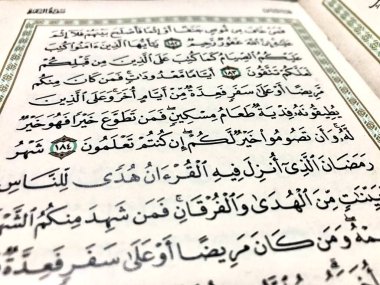 فَمَنْ خَافَ مِن مُّوصٍ جَنَفًا أَوْ إِثْمًا فَأَصْلَحَ بَيْنَهُمْ فَلَآ إِثْمَ
عَلَيْهِ إِنَّ ٱللَّهَ غَفُورٌ رَّحِيمٌ ١٨٢ يَٰٓأَيُّهَا ٱلَّذِينَ ءَامَنُوا۟ كُتِبَ
عَلَيْكُمُ ٱلصِّيَامُ كَمَا كُتِبَ عَلَى ٱلَّذِينَ مِن قَبْلِكُمْ
لَعَلَّكُمْ تَتَّقُونَ ١٨٣ أَيَّامًا مَّعْدُودَٰتٍ فَمَن كَانَ مِنكُم
مَّرِيضًا أَوْ عَلَىٰ سَفَرٍ فَعِدَّةٌ مِّنْ أَيَّامٍ أُخَرَ وَعَلَى ٱلَّذِينَ
يُطِيقُونَهُۥ فِدْيَةٌ طَعَامُ مِسْكِينٍ فَمَن تَطَوَّعَ خَيْرًا فَهُوَ خَيْرٌ
لَّهُۥ وَأَن تَصُومُوا۟ خَيْرٌ لَّكُمْ إِن كُنتُمْ تَعْلَمُونَ ١٨٤ شَهْرُ
رَمَضَانَ ٱلَّذِىٓ أُنزِلَ فِيهِ ٱلْقُرْءَانُ هُدًى لِّلنَّاسِ
بَيِّنَٰتٍ مِّنَ ٱلْهُدَىٰ وَٱلْفُرْقَانِ فَمَن شَهِدَ مِنكُمُ ٱلشَّهْ
مْهُ وَمَن كَانَ مَرِيضًا أَوْ عَلَىٰ سَفَرٍ فَعِدَّةٌ